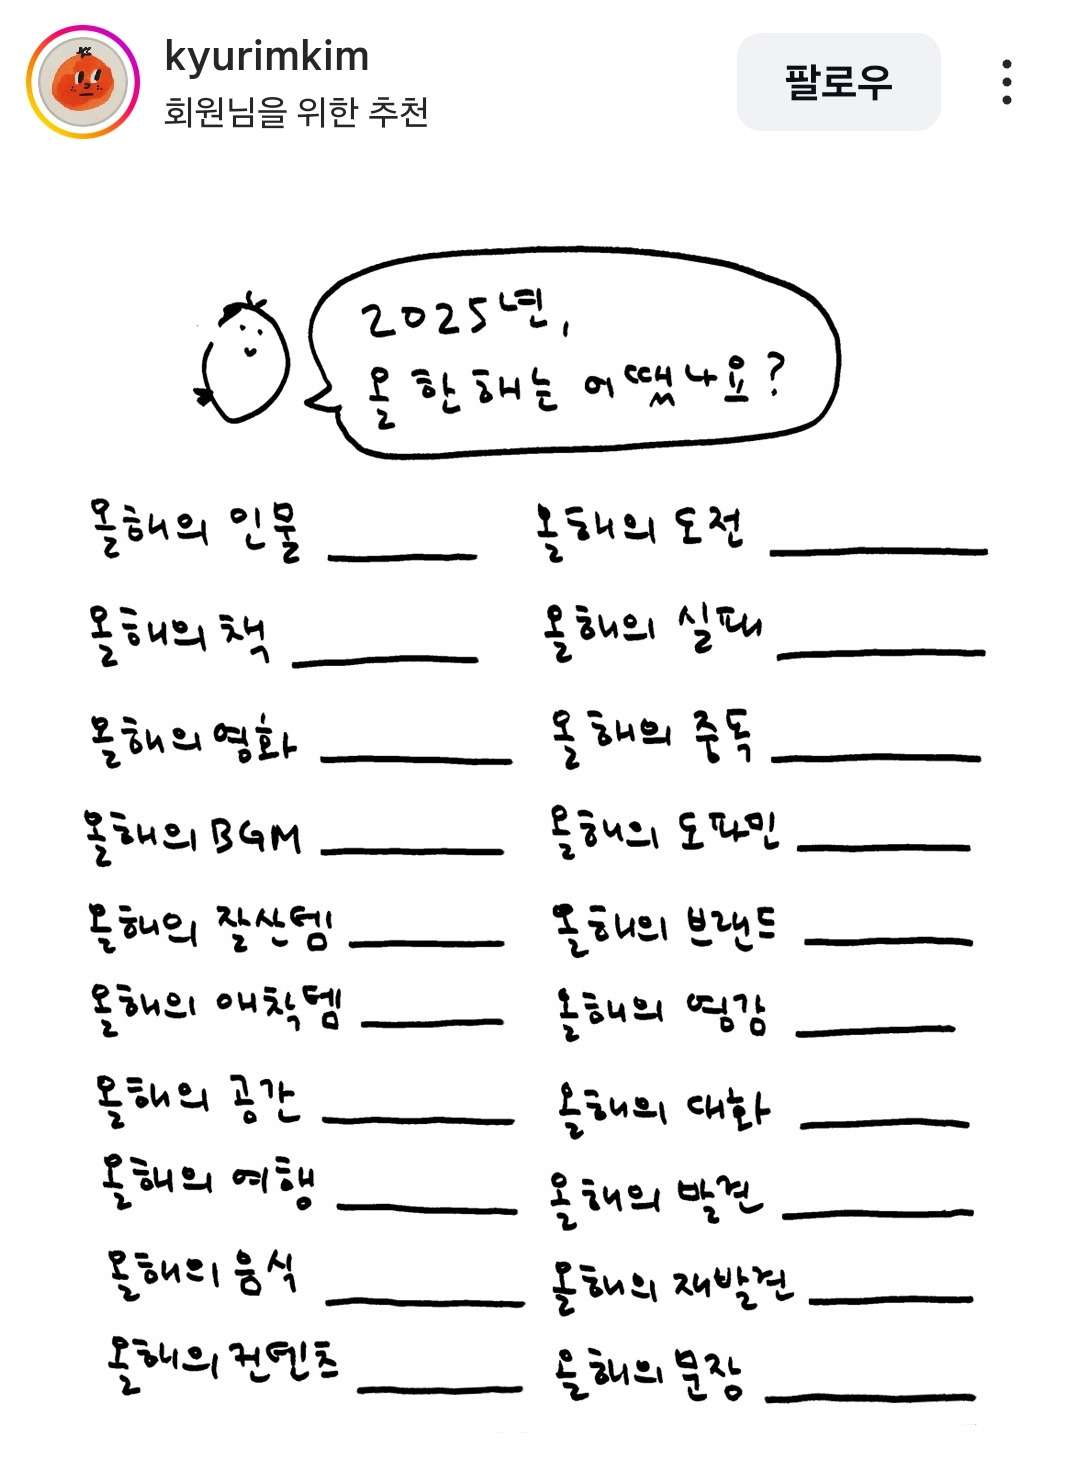 kyurimkim
회원님을 위한 추천
팔로우
2025년,
올 한 해는 어땠나요?
올해의 인물
올해의 책
올해의 영화
올해의 BGM
올해의 잘산템
올해의 애착템
올해의 공간
올해의 여행
올해의 음식
올해의 컨텐츠
올해의 도전
올해의 실패
올해의 중독
올해의 도파민
올해의 브랜드
올해의 영감
올해의 대화
올해의 발견
올해의 재발견
올해의 문장